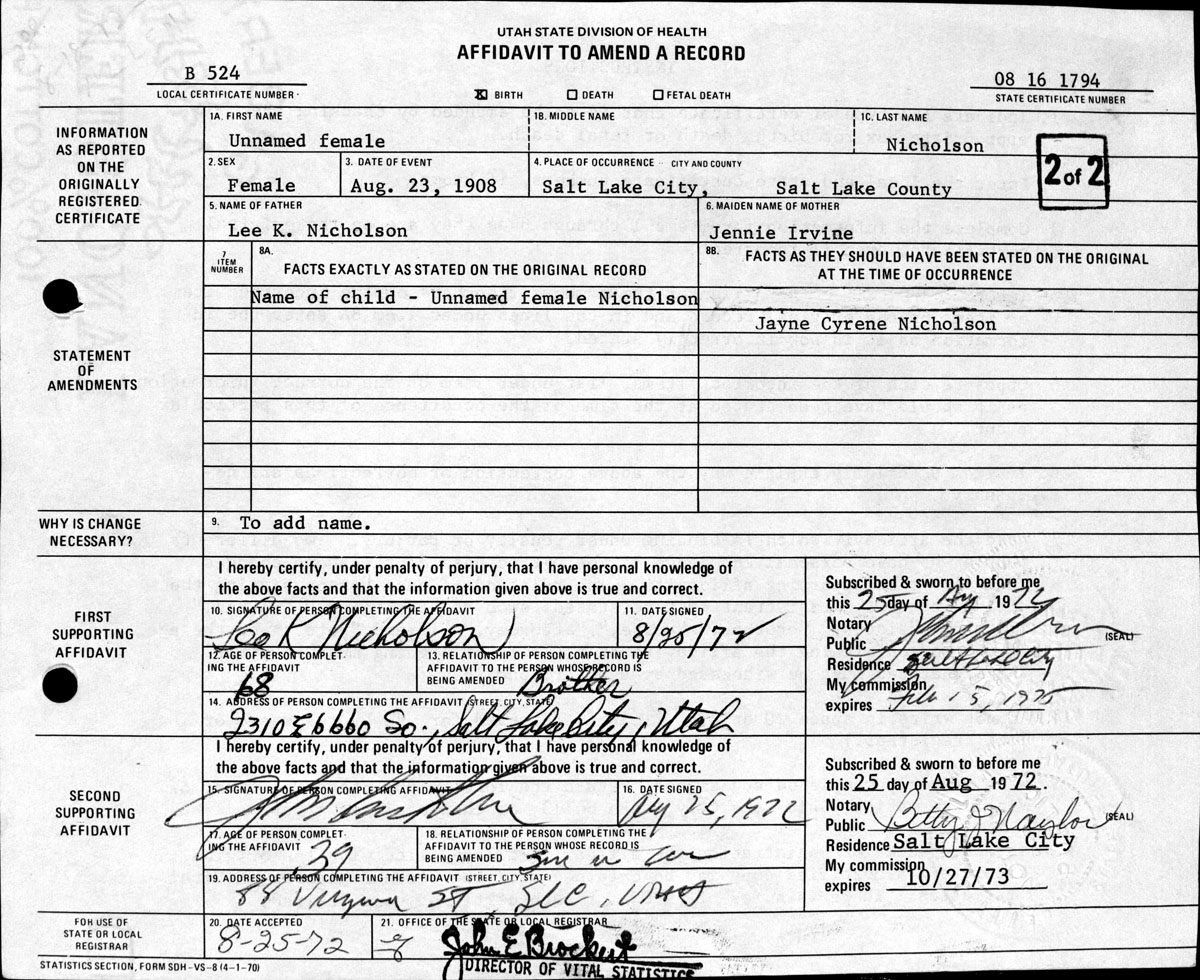 UTAH STATE DIVISION OF HEALTH
AFFIDAVIT TO AMEND A RECORD
B 524
LOCAL CERTIFICATE NUMBER
X BIRTH DEATH FETAL DEATH
08 16 1794
STATE CERTIFICATE NUMBER
INFORMATION AS REPORTED ON THE ORIGINALLY REGISTERED CERTIFICATE
1A. FIRST NAME
Unnamed female
1B. MIDDLE NAME
1C. LAST NAME
Nicholson
2. SEX
Female
3. DATE OF EVENT
Aug. 23, 1908
4. PLACE OF OCCURRENCE - CITY AND COUNTY
Salt Lake City, Salt Lake County
2 of 2
5. NAME OF FATHER
Lee K. Nicholson
6. MAIDEN NAME OF MOTHER
Jennie Irvine
STATEMENT OF AMENDMENTS
7 ITEM NUMBER
8A. FACTS EXACTLY AS STATED ON THE ORIGINAL RECORD
8B. FACTS AS THEY SHOULD HAVE BEEN STATED ON THE ORIGINAL
AT THE TIME OF OCCURRENCE
Name of child - Unnamed female Nicholson
Jayne Cyrene Nicholson
WHY IS CHANGE NECESSARY?
9. To add name.
FIRST SUPPORTING AFFIDAVIT
I hereby certify, under penalty of perjury, that I have personal knowledge of
the above facts and that the information given above is true and correct.
10. SIGNATURE OF PERSON COMPLETING THE AFFIDAVIT
Lee K Nicholson
11. DATE SIGNED
8/25/72
12. AGE OF PERSON COMPLETING THE AFFIDAVIT
68
13. RELATIONSHIP OF PERSON COMPLETING THE
AFFIDAVIT TO THE PERSON WHOSE RECORD IS
BEING AMENDED Brother
14. ADDRESS OF PERSON COMPLETING THE AFFIDAVIT (STREET, CITY, STATE)
2310 E 6660 So., Salt Lake City, Utah
Subscribed & sworn to before me
this 25 day of Aug 1972
Notary
Public (SEAL)
Residence Salt Lake City
My commission
expires Feb 15, 1975
SECOND SUPPORTING AFFIDAVIT
I hereby certify, under penalty of perjury, that I have personal knowledge of
the above facts and that the information given above is true and correct.
15. SIGNATURE OF PERSON COMPLETING AFFIDAVIT
16. DATE SIGNED
Aug 25, 1972
17. AGE OF PERSON COMPLETING THE AFFIDAVIT
39
18. RELATIONSHIP OF PERSON COMPLETING THE
AFFIDAVIT TO THE PERSON WHOSE RECORD IS
BEING AMENDED
19. ADDRESS OF PERSON COMPLETING THE AFFIDAVIT (STREET, CITY, STATE)
88 Virginia ST, SLC, Utah
Subscribed & sworn to before me
this 25 day of Aug 1972.
Notary
Public Betty J Naylor (SEAL)
Residence Salt Lake City
My commission
expires 10/27/73
FOR USE OF STATE OR LOCAL REGISTRAR
20. DATE ACCEPTED
8-25-72
21. OFFICE OF THE STATE OR LOCAL REGISTRAR
John E Brockert
DIRECTOR OF VITAL STATISTICS
STATISTICS SECTION, FORM SDH-VS-8 (4-1-70)